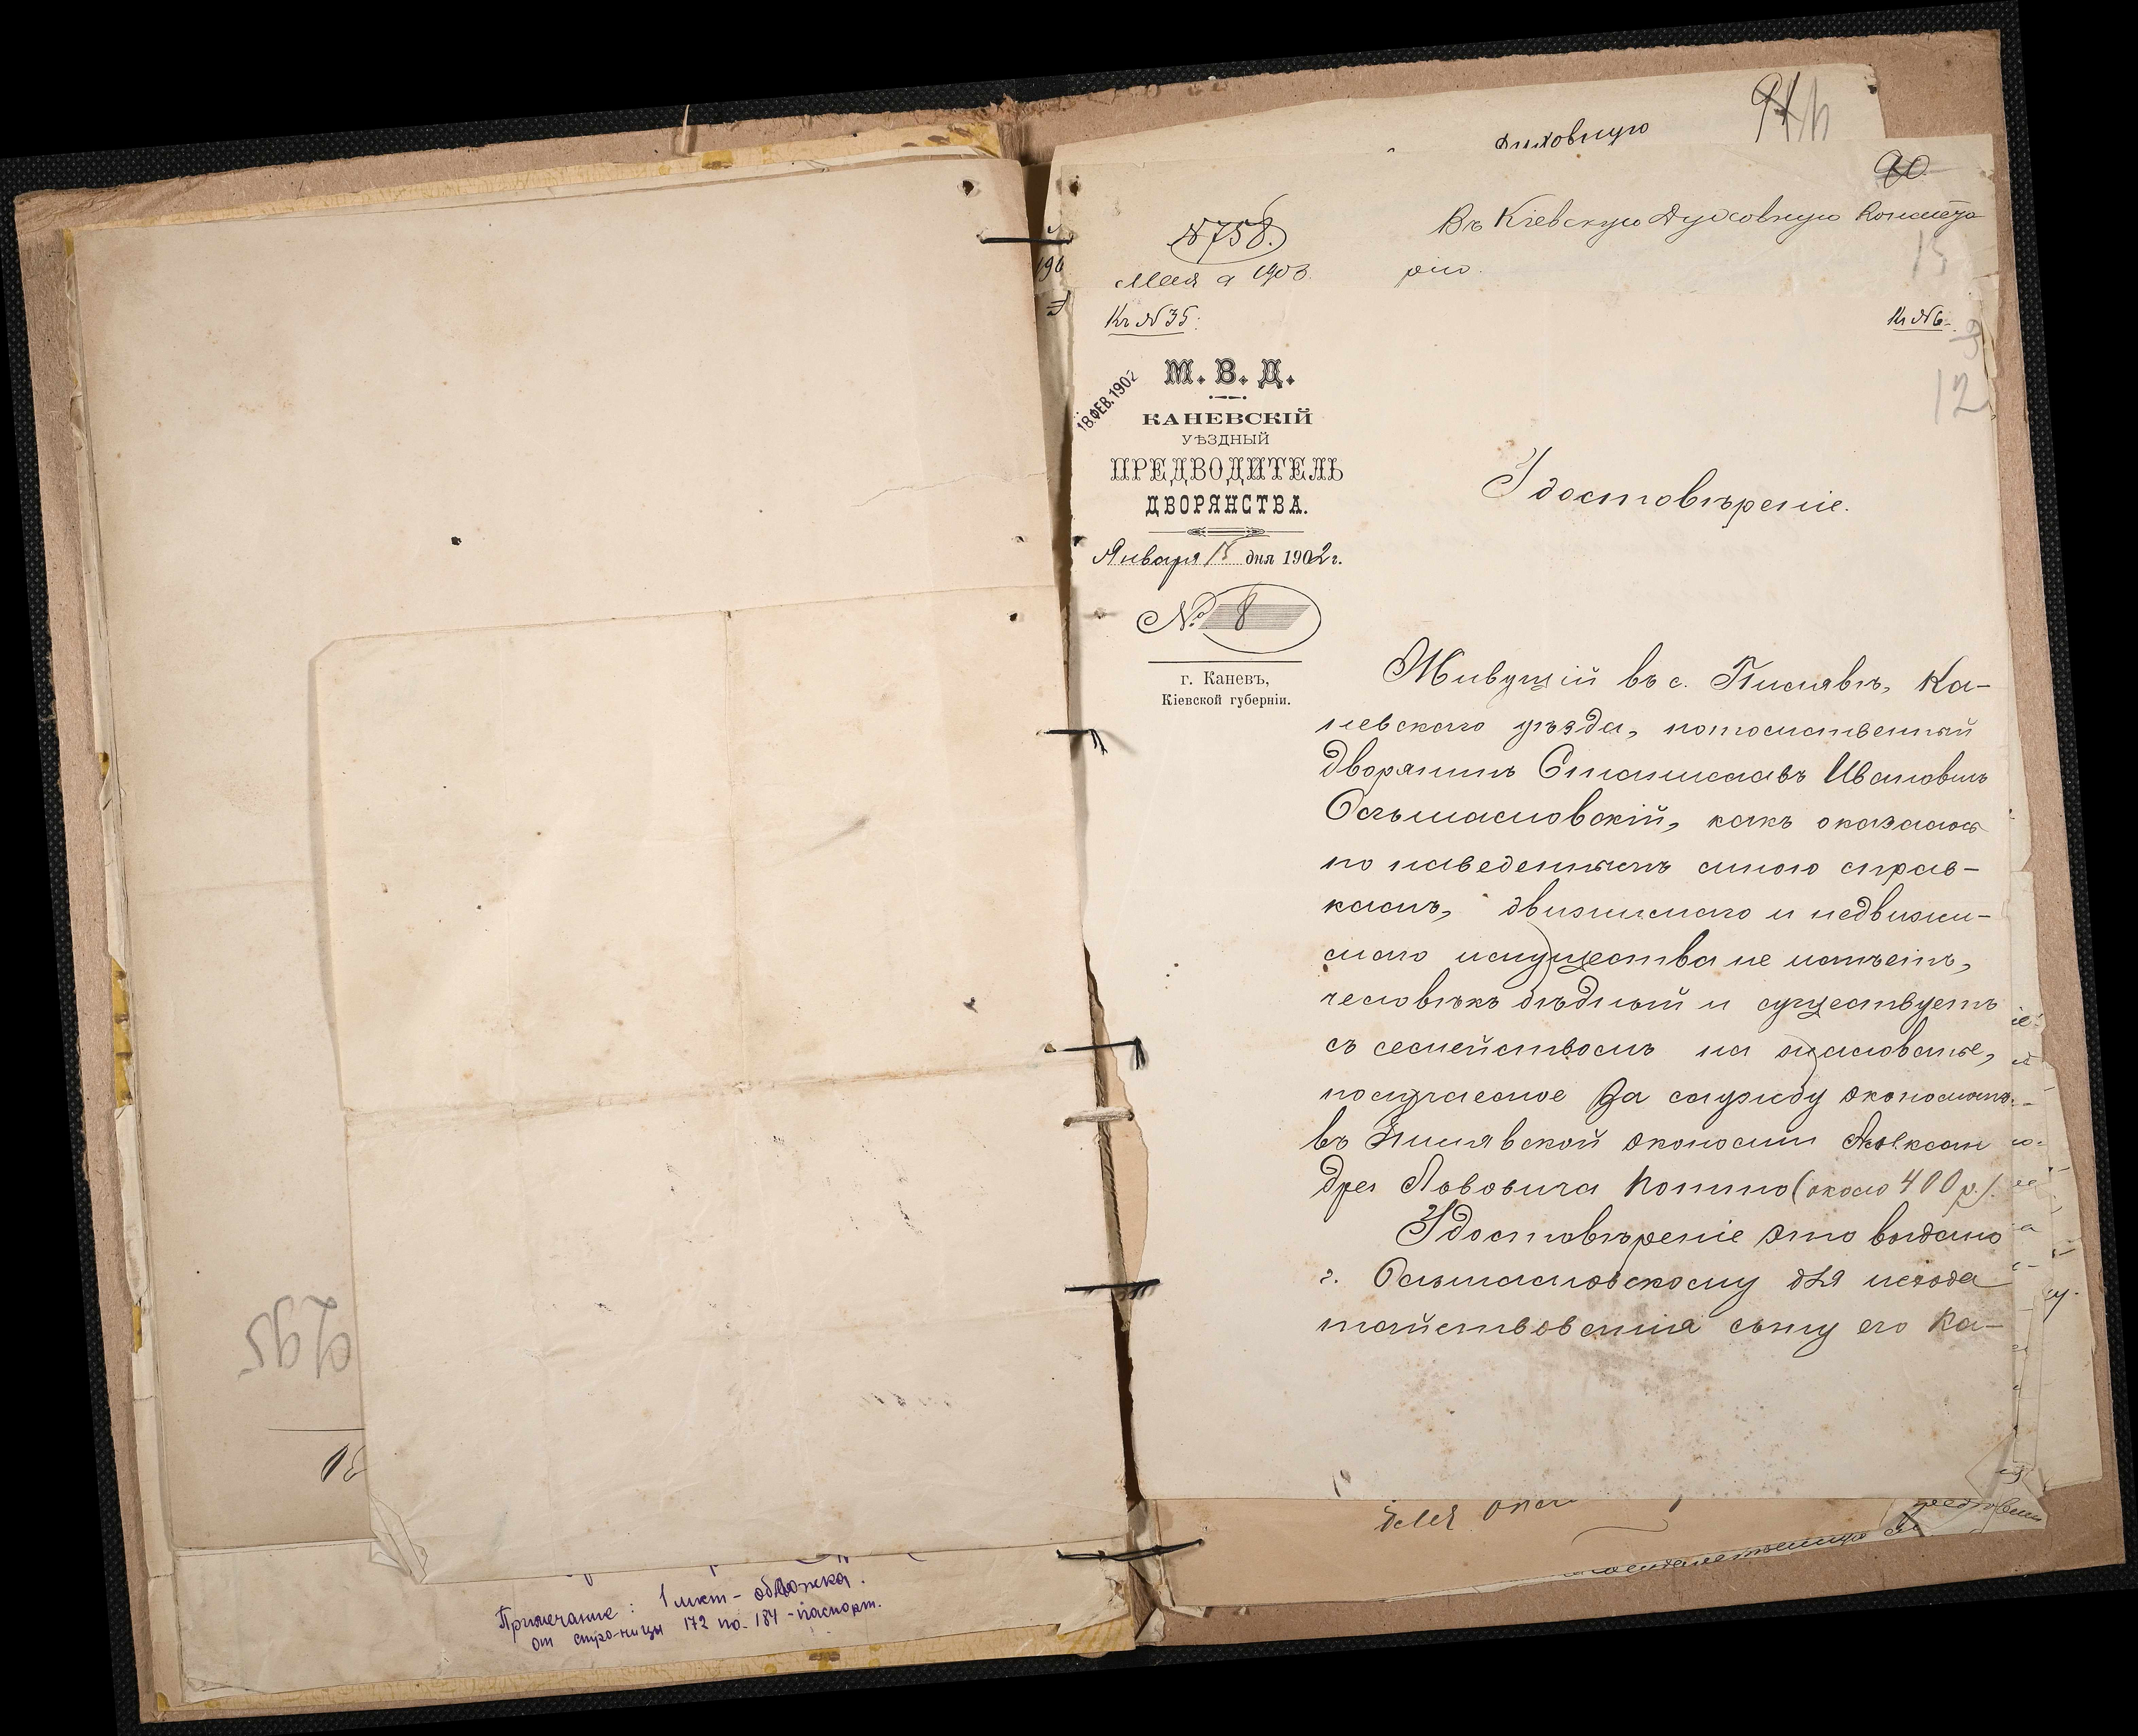 духовную
90.
№758.
Мая 9 1903.
Къ №35.
Въ Кіевскую Духовную Консисто
рію.
Къ №6.
15
12
18.ФЕВ.1902
М. В. Д.
КАНЕВСКІЙ
УѢЗДНЫЙ
ПРЕДВОДИТЕЛЬ
ДВОРЯНСТВА.
Января 15 дня 1902 г.
№ 8
г. Каневъ,
Кіевской губерніи.
Удостовѣреніе.
Живущій въ с. Пилявѣ, Ка-
невскаго уѣзда, потомственный
дворянинъ Станиславъ Ивановичъ
какъ оказалось
по наведеннымъ мною справ-
камъ, движимаго и недвижи-
маго имущества не имѣетъ,
человѣкъ бѣдный и существуетъ
съ семействомъ на жалованье,
получаемое за службу экономомъ
въ Пилявской экономіи Александ
дра Львовича (около 400 р.).
Удостовѣреніе это выдано
г. для исхода
тайствованія сыну его Ка-
295
для
Примечание: 1 лист - обложка.
от страницы 172 по 184 - паспорт.